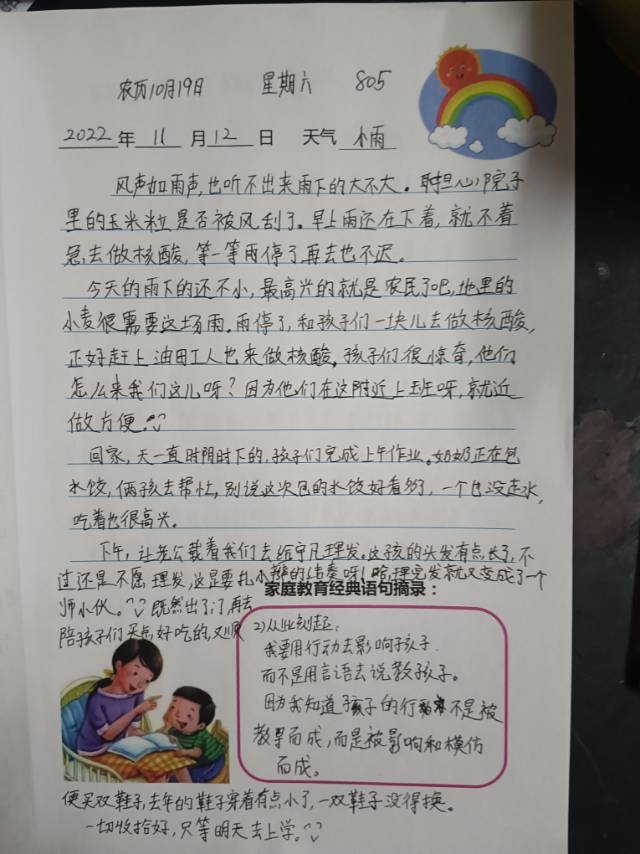 农历10月19日 星期六 805
2022年 11月12日 天气 小雨
风声如雨声,也听不出来雨下的大不大。担心院子
里的玉米粒是否被风刮了。早上雨还在下着,就不着
急去做核酸,等一等雨停了再去也不迟。
今天的雨下的还不小,最高兴的就是农民了吧,地里的
小麦很需要这场雨。雨停了,和孩子们一块儿去做核酸,
正好赶上油田工人也来做核酸。孩子们很惊奇,他们
怎么来我们这儿呀?因为他们在这附近上班呀,就近
做方便。
回家,天一直时阴时下的,孩子们完成上午作业。奶奶正在包
水饺,俩孩去帮忙,别说这次包的水饺好看多了,一个也没走水,
吃着也很高兴。
下午,让老公载着我们去给宇凡理发。这孩的头发有点长了,不
过还是不愿理发,这是要扎小辫的结奏呀!哈,理完发就又变成了一个
帅小伙。既然出了门,再去
陪孩子们买点好吃的,又顺
家庭教育经典语句摘录:
2)从此刻起:
我要用行动去影响孩子
而不是用言语去说教孩子。
因为我知道孩子的行为不是被
教导而成,而是被影响和模仿
而成。
便买双鞋子,去年的鞋子穿着有点小了,一双鞋子没得换。
一切收拾好,只等明天去上学。